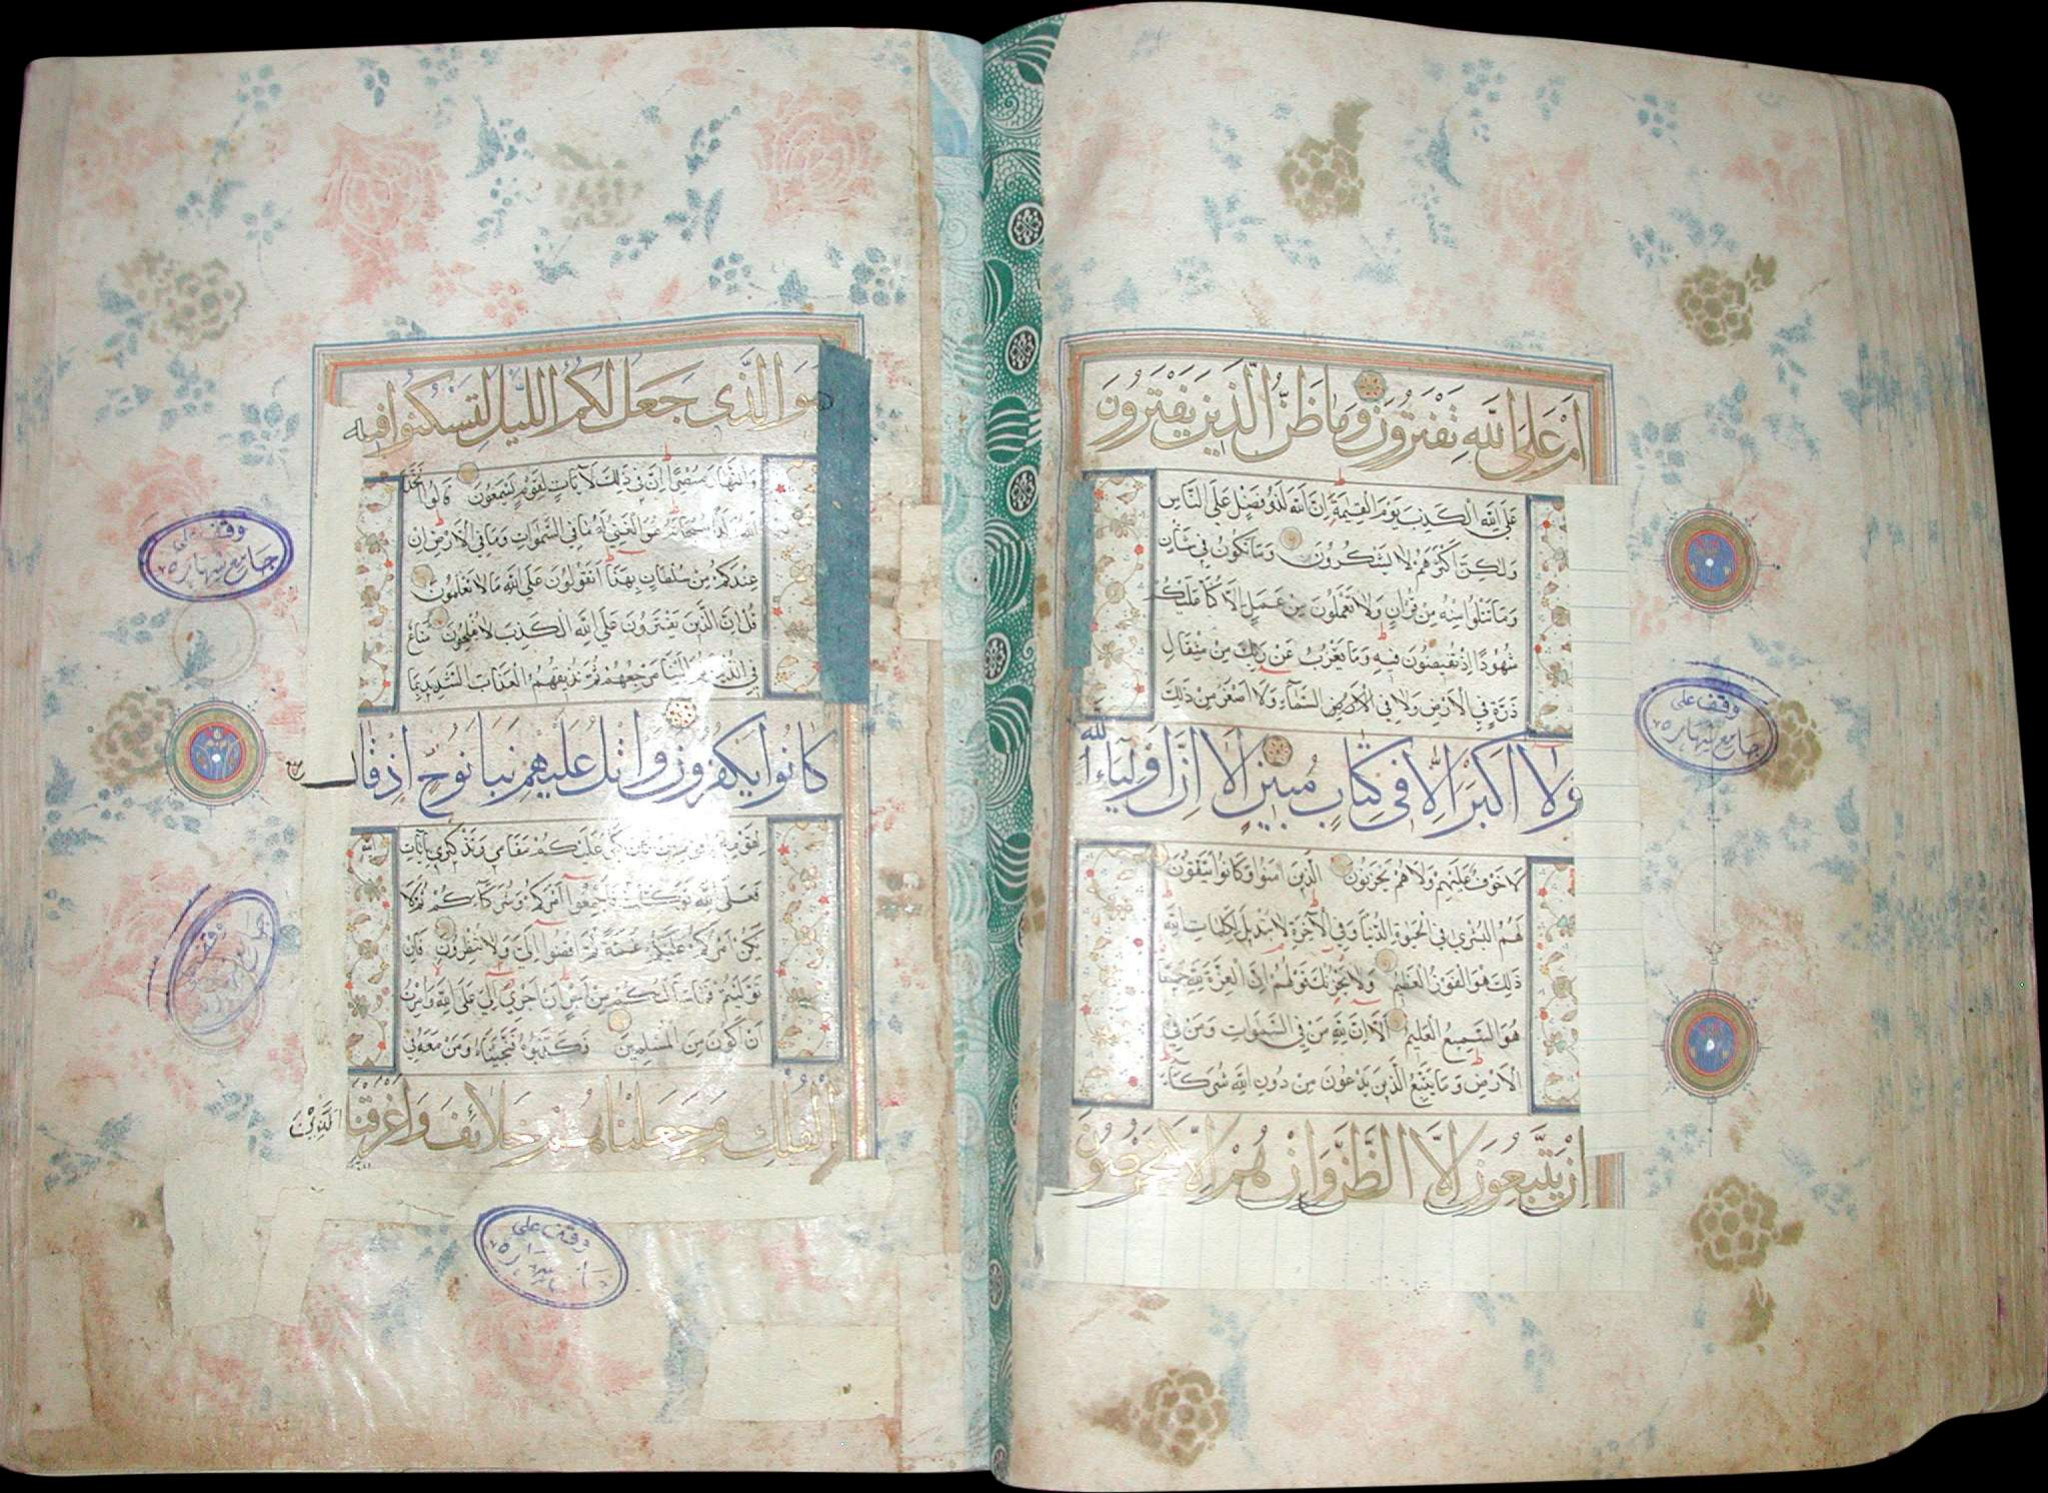 أَمْ عَلَى اللَّهِ تَفْتَرُونَ وَمَا ظَنُّ الَّذِينَ يَفْتَرُونَ
عَلَى اللَّهِ الْكَذِبَ يَوْمَ الْقِيمَةِ إِنَّ اللَّهَ لَذُو فَضْلٍ عَلَى النَّاسِ
وَلكِنَّ أَكْثَرَهُمْ لَا يَشْكُرُونَ وَمَا تَكُونُ فِي شَأْنٍ
وَمَا تَتْلُوا مِنْهُ مِنْ قُرْآنٍ وَلَا تَعْمَلُونَ مِنْ عَمَلٍ إِلَّا كُنَّا عَلَيْكُمْ
شُهُودًا إِذْ تُفِيضُونَ فِيهِ وَمَا يَعْزُبُ عَنْ رَبِّكَ مِنْ مِثْقَالِ
ذَرَّةٍ فِي الْأَرْضِ وَلَا فِي السَّمَاءِ وَلَا أَصْغَرَ مِنْ ذَلِكَ
وَلَا أَكْبَرَ إِلَّا فِي كِتَابٍ مُبِينٍ أَلَا إِنَّ أَوْلِيَاءَ اللَّهِ
لَا خَوْفٌ عَلَيْهِمْ وَلَا هُمْ يَحْزَنُونَ الَّذِينَ آمَنُوا وَكَانُوا يَتَّقُونَ
لَهُمُ الْبُشْرَى فِي الْحَيَوةِ الدُّنْيَا وَفِي الْآخِرَةِ لَا تَبْدِيلَ لِكَلِمَاتِ اللَّهِ
ذَلِكَ هُوَ الْفَوْزُ الْعَظِيمُ وَلَا يَحْزُنْكَ قَوْلُهُمْ إِنَّ الْعِزَّةَ لِلَّهِ جَمِيعًا
هُوَ السَّمِيعُ الْعَلِيمُ أَلَا إِنَّ لِلَّهِ مَنْ فِي السَّمَوَاتِ وَمَنْ فِي
الْأَرْضِ وَمَا يَتَّبِعُ الَّذِينَ يَدْعُونَ مِنْ دُونِ اللَّهِ شُرَكَاءَ
إِنْ يَتَّبِعُونَ إِلَّا الظَّنَّ وَإِنْ هُمْ إِلَّا يَخْرُصُونَ
وقف على
جامع شهارة
هُوَ الَّذِي جَعَلَ لَكُمُ اللَّيْلَ لِتَسْكُنُوا فِيهِ
وَالنَّهَارَ مُبْصِرًا إِنَّ فِي ذَلِكَ لَآيَاتٍ لِقَوْمٍ يَسْمَعُونَ قَالُوا اتَّخَذَ
اللَّهُ وَلَدًا سُبْحَانَهُ هُوَ الْغَنِيُّ لَهُ مَا فِي السَّمَوَاتِ وَمَا فِي الْأَرْضِ إِنْ
عِنْدَكُمْ مِنْ سُلْطَانٍ بِهَذَا أَتَقُولُونَ عَلَى اللَّهِ مَا لَا تَعْلَمُونَ
قُلْ إِنَّ الَّذِينَ يَفْتَرُونَ عَلَى اللَّهِ الْكَذِبَ لَا يُفْلِحُونَ مَتَاعٌ
فِي الدُّنْيَا ثُمَّ إِلَيْنَا مَرْجِعُهُمْ ثُمَّ نُذِيقُهُمُ الْعَذَابَ الشَّدِيدَ بِمَا
كَانُوا يَكْفُرُونَ وَاتْلُ عَلَيْهِمْ نَبَأَ نُوحٍ إِذْ قَالَ
لِقَوْمِهِ عَلَيْكُمْ مَقَامِي وَتَذْكِيرِي بِآيَاتِ
فَعَلَى اللَّهِ تَوَكَّلْتُ فَأَجْمِعُوا أَمْرَكُمْ وَشُرَكَاءَكُمْ ثُمَّ لَا
يَكُنْ أَمْرُكُمْ عَلَيْكُمْ غُمَّةً ثُمَّ اقْضُوا إِلَيَّ وَلَا تُنْظِرُونِ فَإِنْ
تَوَلَّيْتُمْ فَمَا سَأَلْتُكُمْ مِنْ أَجْرٍ إِنْ أَجْرِيَ إِلَّا عَلَى اللَّهِ وَأُمِرْتُ
أَنْ أَكُونَ مِنَ الْمُسْلِمِينَ فَكَذَّبُوهُ فَنَجَّيْنَاهُ وَمَنْ مَعَهُ فِي
الْفُلْكِ وَجَعَلْنَاهُمْ خَلَائِفَ وَأَغْرَقْنَا الَّذِينَ
وقف على
جامع شهارة
وقف على